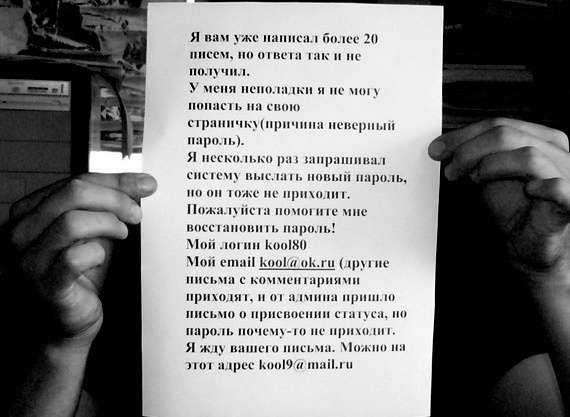 Я вам уже написал более 20
писем, но ответа так и не
получил.
У меня неполадки я не могу
попасть на свою
страничку(причина неверный
пароль).
Я несколько раз запрашивал
систему выслать новый пароль,
но он тоже не приходит.
Пожалуйста помогите мне
восстановить пароль!
Мой логин kool80
Мой email kool@ok.ru (другие
письма с комментариями
приходят, и от админа пришло
письмо о присвоении статуса, но
пароль почему-то не приходит.
Я жду вашего письма. Можно на
этот адрес kool9@mail.ru